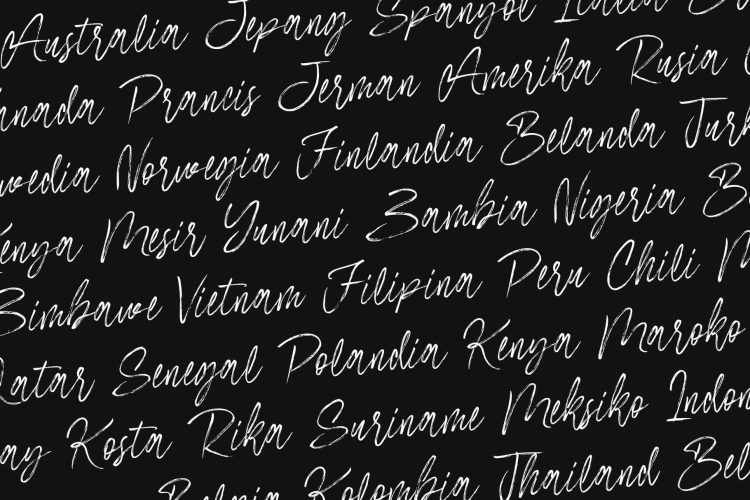 Australia Jepang Spanyol Italia
anada Prancis Jerman Amerika Rusia
wedia Norwegia Finlandia Belanda Turk
Kenya Mesir Yunani Zambia Nigeria B
Zimbawe Vietnam Filipina Peru Chili M
Qatar Senegal Polandia Kenya Maroko
ay Kosta Rika Suriname Meksiko Indon
Belgia Kolombia Thailand Bel